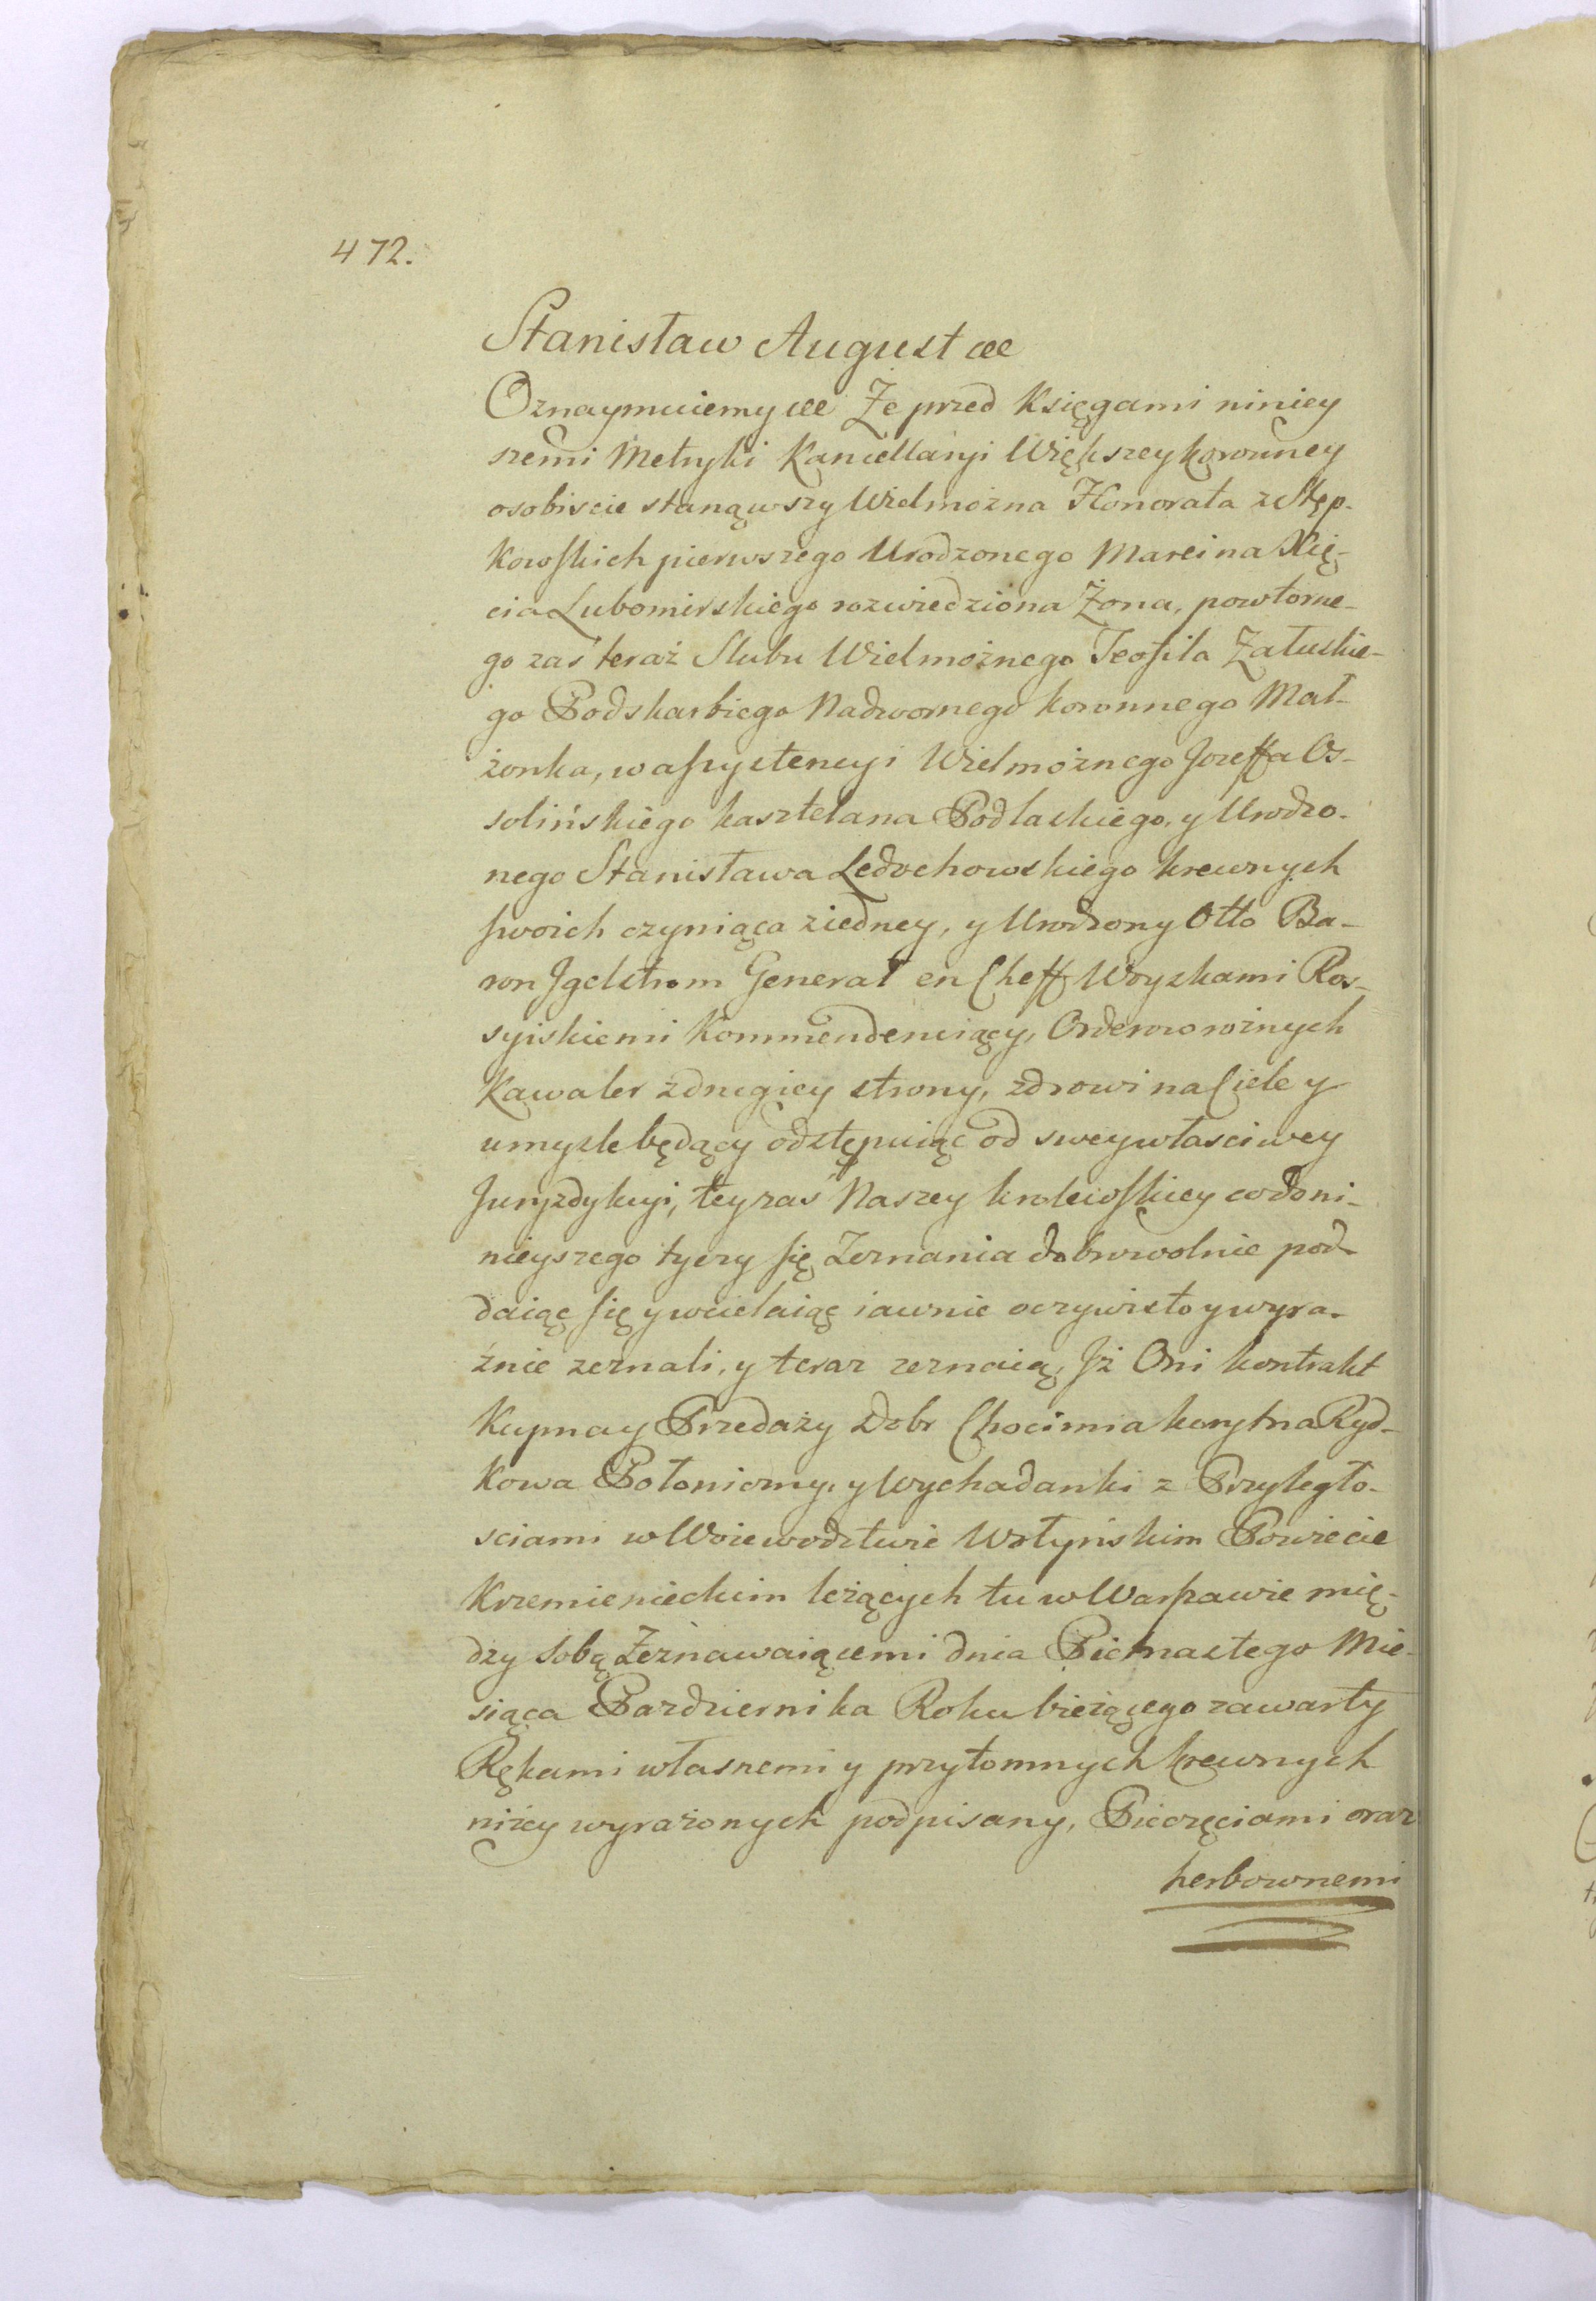 472.
Stanisław August &c
Oznaymuiemy &c Że przed Księgami niniey
szemi Metryki Kancellaryi Większey koronney
osobiscie stanąwszy Wielmożna Honorata z Stęp-
kowskich pierwszego Urodzonego Marcina Xię-
cia Lubomirskiego rozwiedziona Żona, powtorne-
go zaś teraz Slubu Wielmożnego Teofila Załuskie-
go Podskarbiego Nadwornego koronnego Mał-
żonka, w assystencyi Wielmożnego Jozeffa Os-
solińskiego kasztelana Podlaskiego, y Urodzo-
nego Stanisława Ledochowskiego krewnych
swoich czyniąca z iedney, y Urodzony Otto Ba-
ron Jgelstrom Generał en Cheff Woyskami Ros-
syiskiemi kommenderuiący, Orderow roznych
Kawaler z drugiey strony, zdrowi na Ciele y
umysle będący odstępuiąc od swey własciwey
Juryzdykcyi, tey zas Naszey krolewskiey co do ni-
nieyszego tycze się Zeznania dobrowolnie pod-
daiąc się y wcielaiąc iawnie oczywisto y wyra-
źnie zeznali, y teraz zeznaią, Jż Oni kontrakt
Kupna y Przedaży Dobr Chocimia korytna Ryd-
kowa Połoniczny, y Wychadanki z Przyległo-
sciami w Woiewodztwie Wołyńskim Powiecie
Krzemienieckim leżących tu w Warszawie mię-
dzy sobą Zeznawaiącemi dnia Pietnastego Mie-
siąca Pazdziernika Roku bieżącego zawarty
Rękami własnemi y przytomnych krewnych
niżey wyrażonych podpisany, Pieczęciami oraz
herbownemi